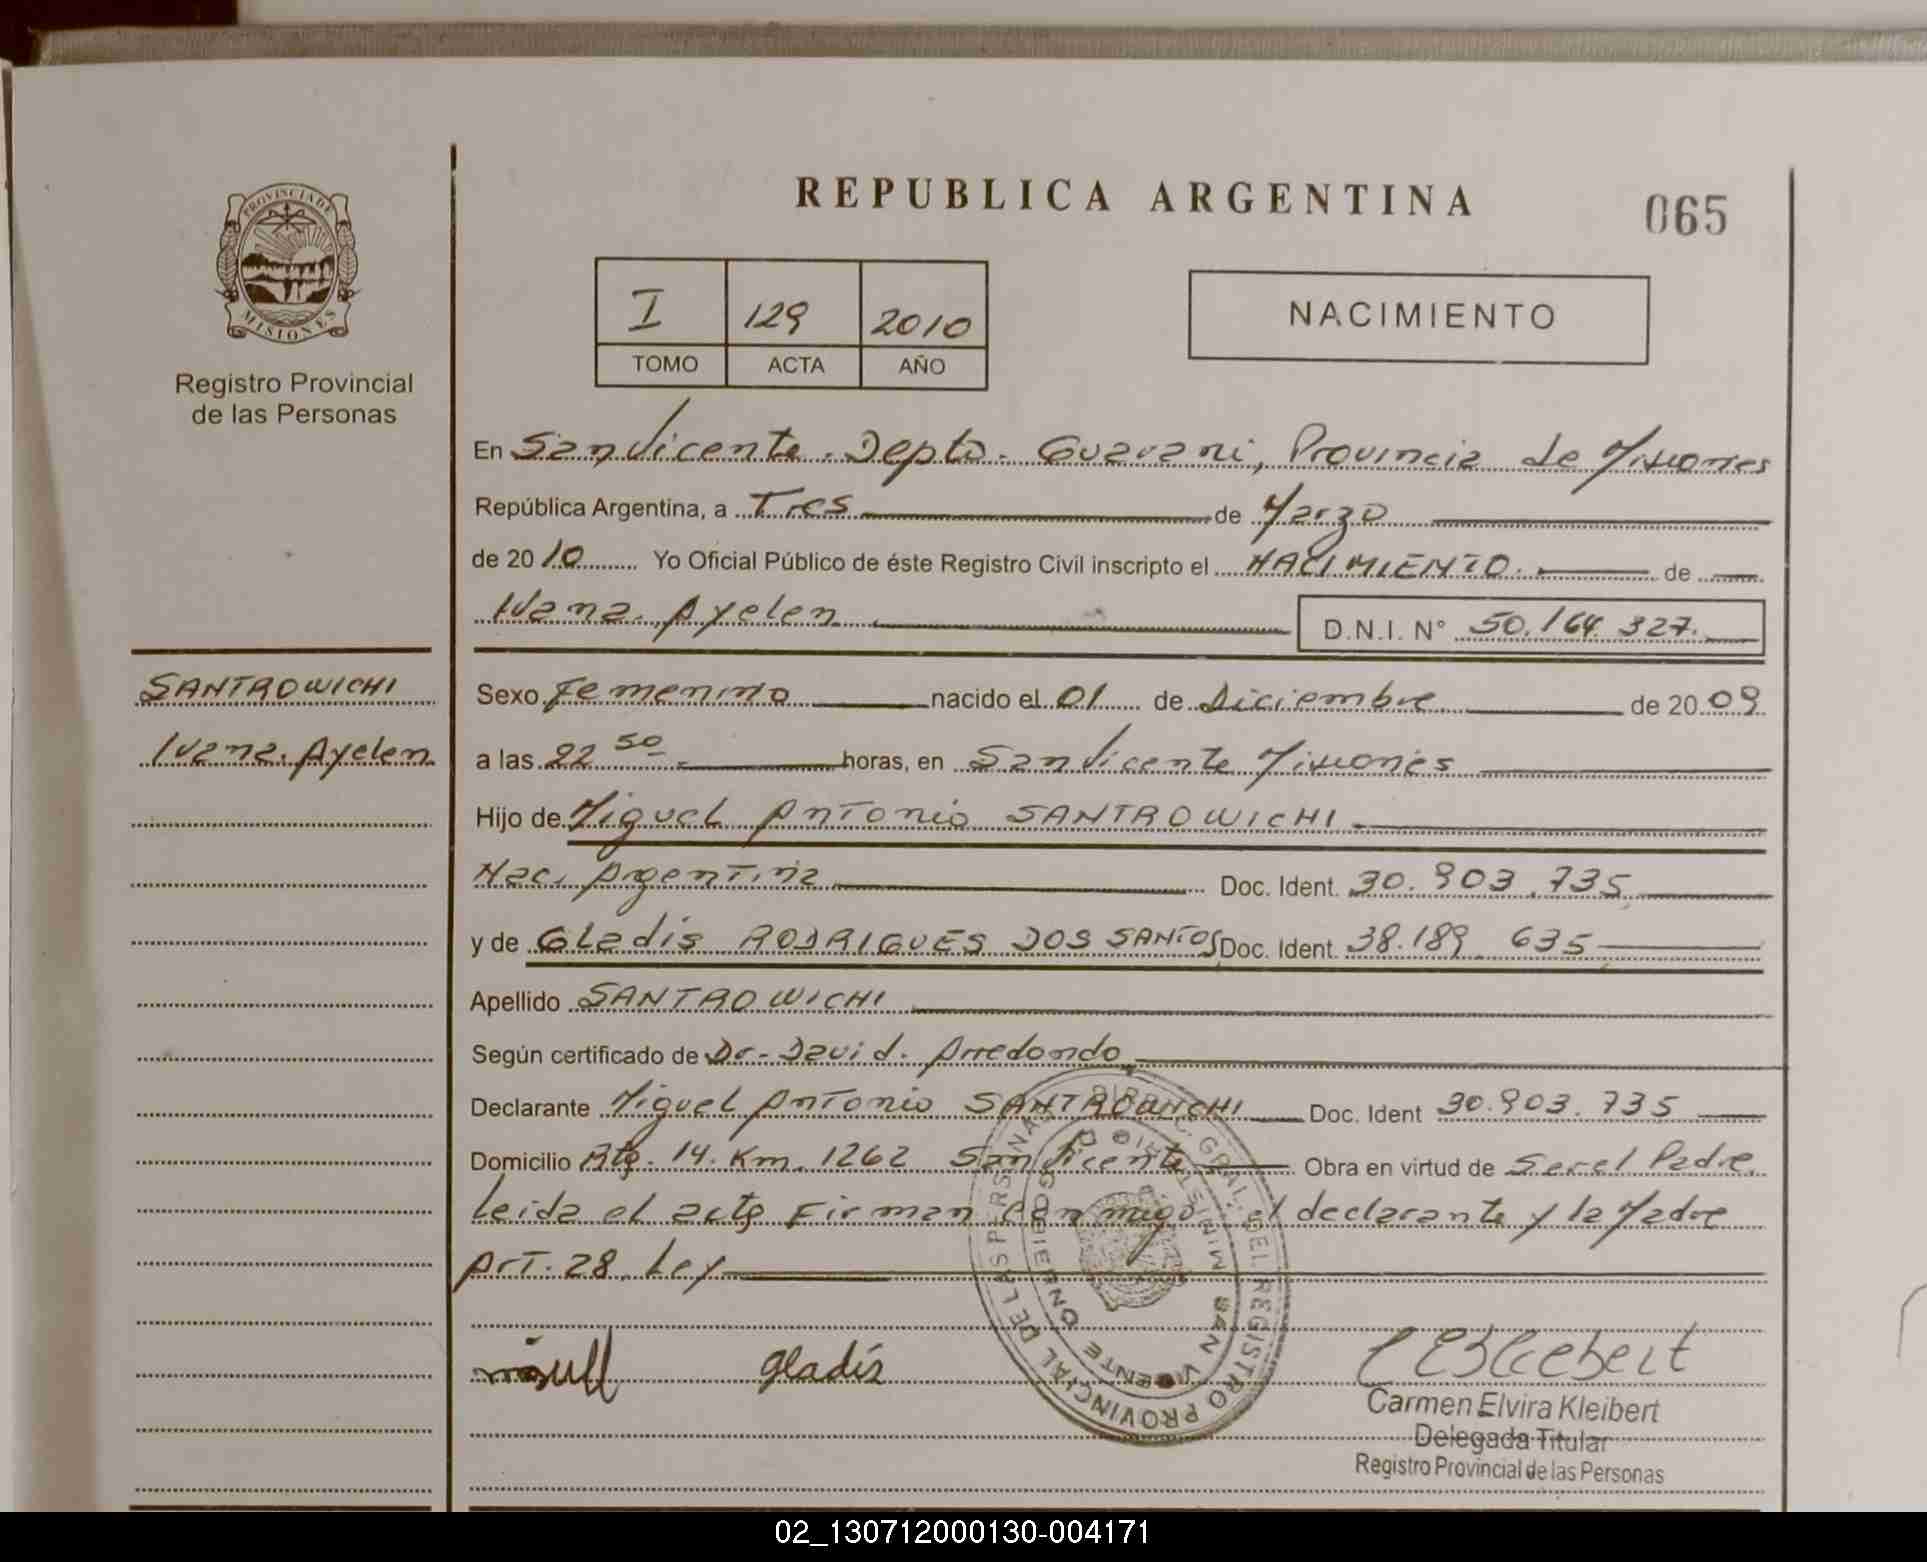 REPUBLICA ARGENTINA
065
PROVINCIA DE MISIONES
Registro Provincial
de las Personas
I 129 2010
TOMO ACTA AÑO
NACIMIENTO
En San Vicente. Depto. Guarani, Provincia de Misiones
República Argentina, a Tres de Marzo
de 2010 Yo Oficial Público de éste Registro Civil inscripto el NACIMIENTO. de
Ivana. Ayelen D.N.I. N° 50.164.327.
SANTROWICHI
Ivana. Ayelen
Sexo Femenino nacido el 01 de Diciembre de 2009
a las 22 50 horas, en San Vicente Misiones
Hijo de Miguel Antonio SANTROWICHI
Nac. Argentina Doc. Ident. 30.903.735
y de Gladis RODRIGUES DOS SANTOS Doc. Ident. 38.189.635
Apellido SANTROWICHI
Según certificado de Dr. David. Arredondo
Declarante Miguel Antonio SANTROWICHI Doc. Ident 30.903.735
Domicilio Rta. 14. Km. 1262 San Vicente Obra en virtud de Ser el Padre
Leida el acta Firman conmigo el declarante y la Madre
Art. 28. Ley
DIREC. GRAL. DEL REGISTRO PROVINCIAL DE LAS PERSONAS
MINISTERIO DE GOBIERNO
SAN VICENTE
Gladis
CEKleibert
Carmen Elvira Kleibert
Delegada Titular
Registro Provincial de las Personas
02_130712000130-004171